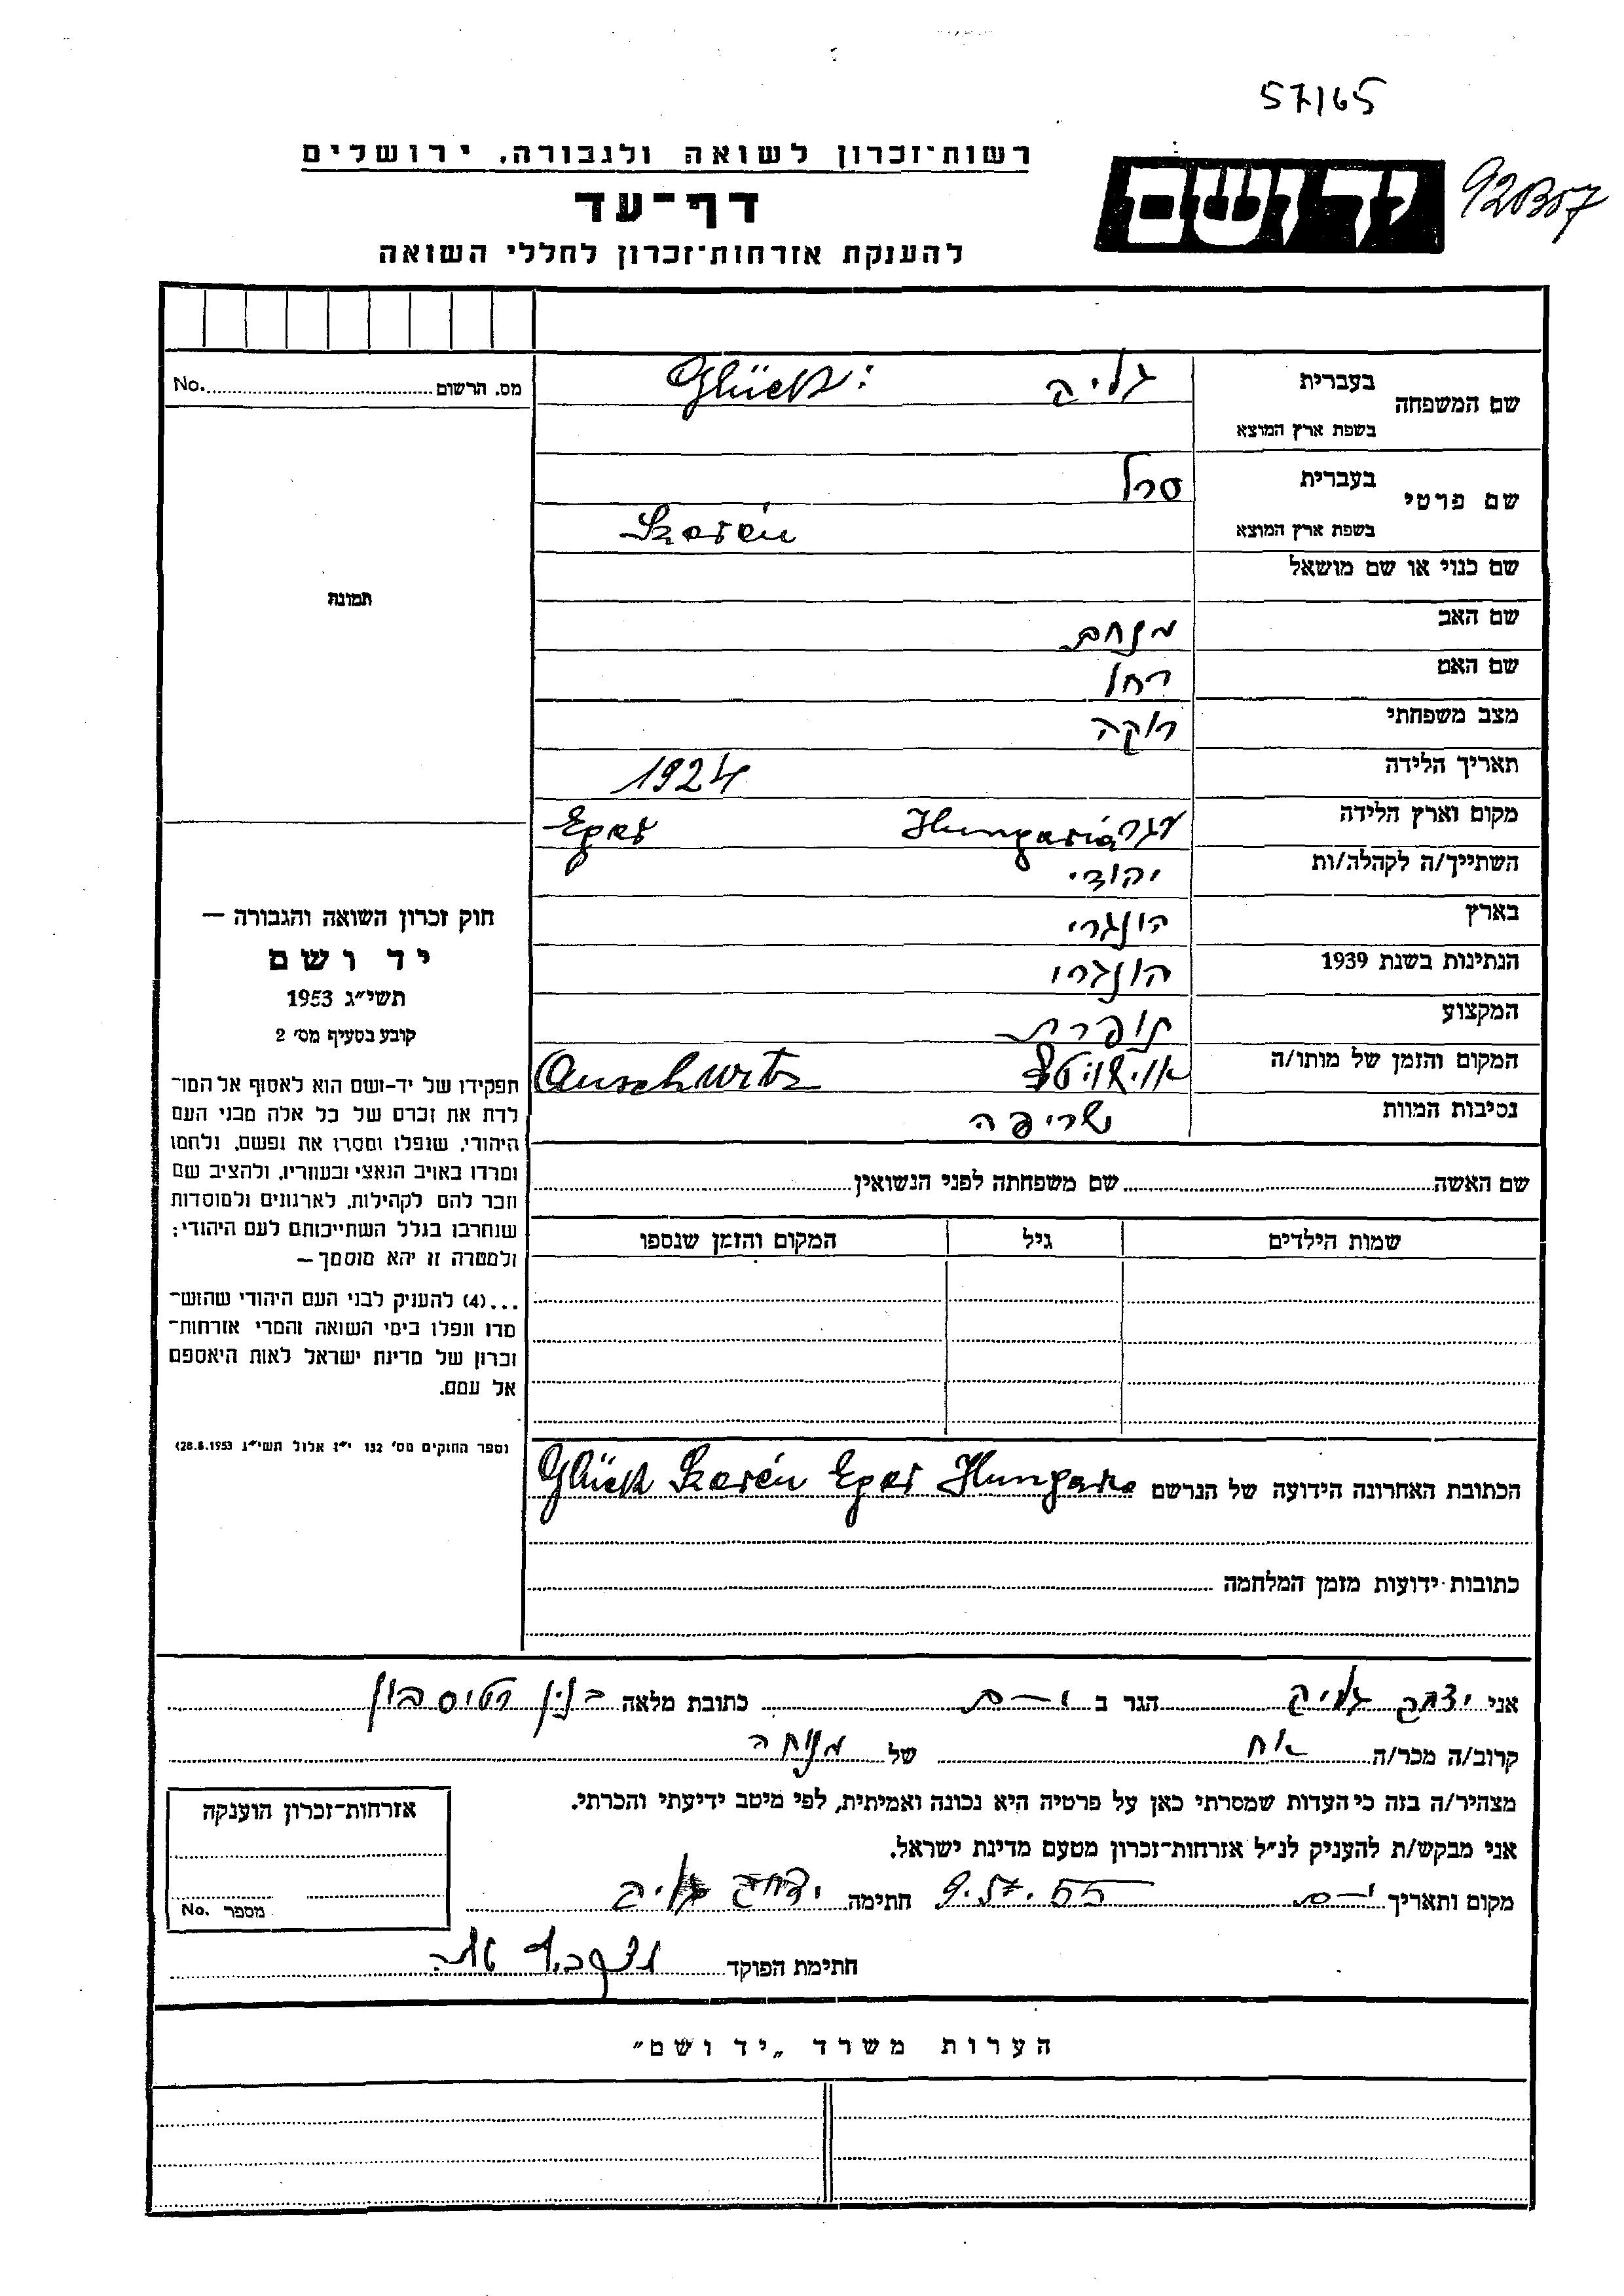 57/65
רשות־זכרון לשואה ולגבורה, ירושלים
יד ושם
דף־עד
להענקת אזרחות־זכרון לחללי השואה
מס. הרשום No.
שם המשפחה בעברית גליק Glück:
בשפת ארץ המוצא
שם פרטי בעברית סרל
בשפת ארץ המוצא Szerén
שם כנוי או שם מושאל
תמונה
שם האב מנחם
שם האם רחל
מצב משפחתי רוקה
תאריך הלידה 1924
מקום וארץ הלידה עגר Hungaria Eger
השתייך/ה לקהלה/ות יהודי
בארץ הונגרי
הנתינות בשנת 1939 הונגרי
המקצוע תופרת
המקום והזמן של מותו/ה אוישויטץ Auschwitz
נסיבות המוות שריפה
שם האשה שם משפחתה לפני הנשואין
שמות הילדים גיל המקום והזמן שנספו
הכתובת האחרונה הידועה של הנרשם Glück Szerén Eger Hungaria
כתובות ידועות מזמן המלחמה
חוק זכרון השואה והגבורה —
יד ושם
תשי״ג 1953
קובע בסעיף מס׳ 2
תפקידו של יד-ושם הוא לאסוף אל המו־
לדת את זכרם של כל אלה מבני העם
היהודי, שנפלו ומסרו את נפשם, נלחמו
ומרדו באויב הנאצי ובעוזריו, ולהציב שם
וזכר להם לקהילות, לארגונים ולמוסדות
שנחרבו בגלל השתייכותם לעם היהודי;
ולמטרה זו יהא מוסמך —
...(4) להענית לבני העם היהודי שהוש־
מדו ונפלו בימי השואה והמרי אזרחות־
זכרון של מדינת ישראל לאות היאספם
אל עמם.
(ספר החוקים מס׳ 132 י״ז אלול תשי״ג 28.8.1953)
אני יצחק גליק הגר ב י-ם כתובת מלאה בנין רטיסבון
קרוב/ה מכר/ה אח של מנוחה
מצהיר/ה בזה כי העדות שמסרתי כאן על פרטיה היא נכונה ואמיתית, לפי מיטב ידיעתי והכרתי.
אני מבקש/ת להעניק לנ״ל אזרחות־זכרון מטעם מדינת ישראל.
מקום ותאריך י-ם חתימה יצחק גליק
חתימת הפוקד
אזרחות־זכרון הוענקה
מספר No.
הערות משרד „יד ושם״